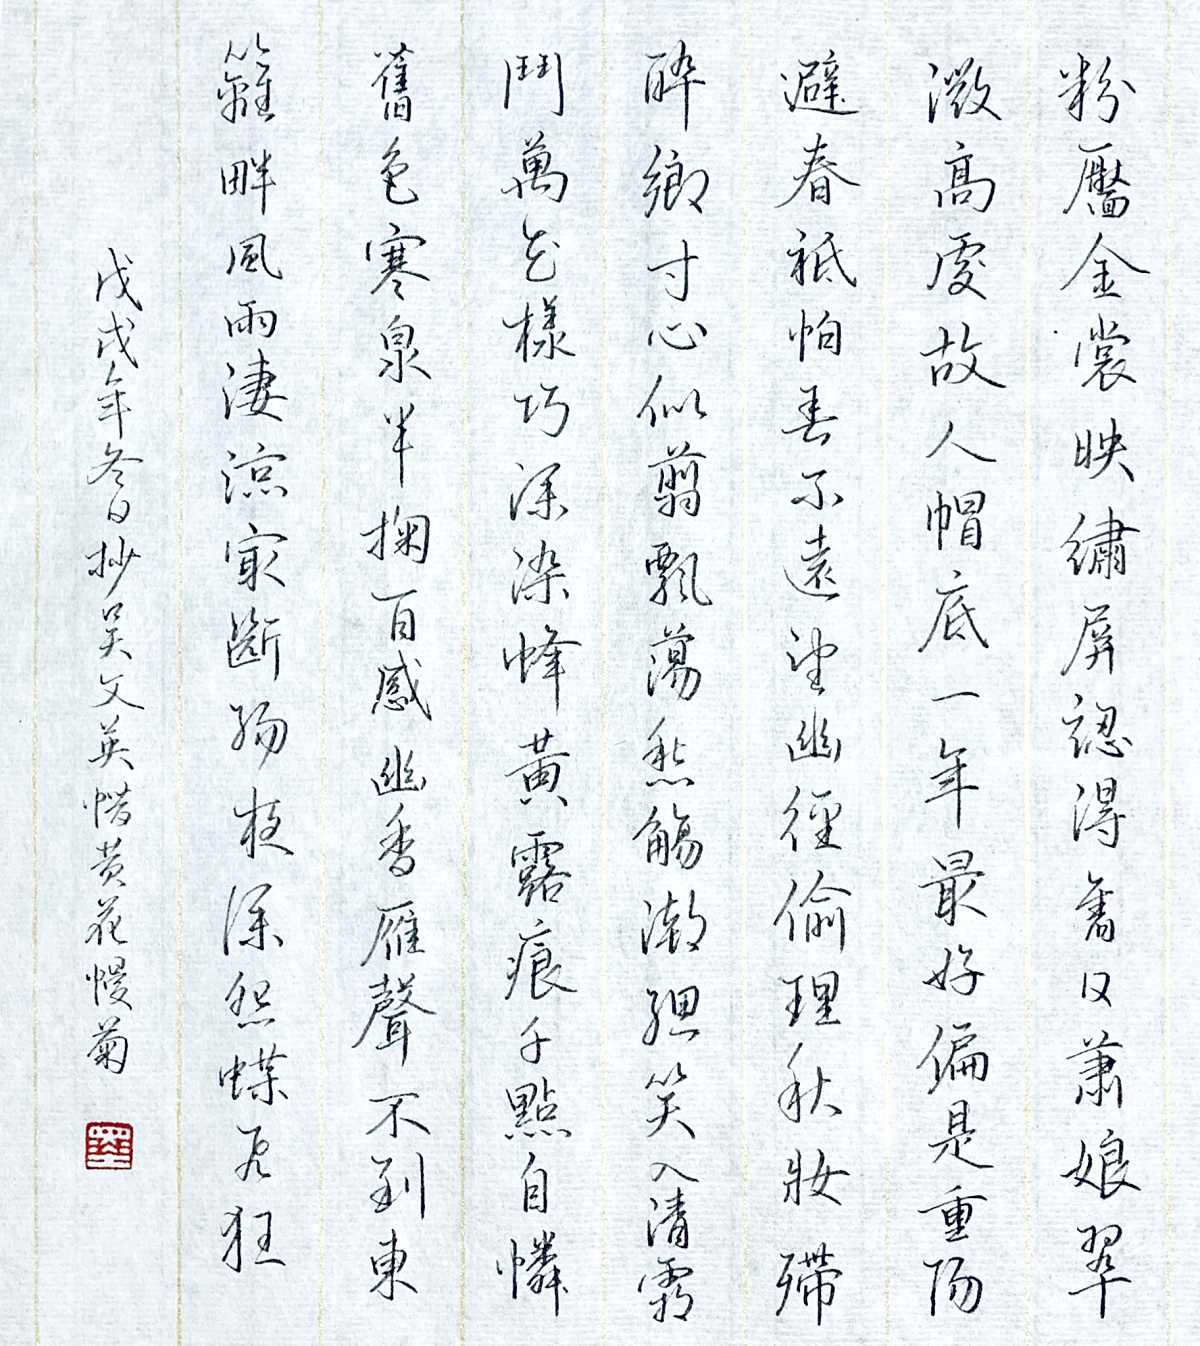 粉靨金裳映繡屏認得舊日蕭娘翠
微高處故人帽底一年最好偏是重陽
避春祗怕春不遠望幽徑偷理秋妝殢
醉鄉寸心似翦飄蕩愁觴潮靦笑入清霜
鬥萬花樣巧深染蜂黃露痕千點自憐
舊色寒泉半掬百感幽香雁聲不到東
籬畔風雨淒涼最斷腸夜深怨蝶飛狂
戊戌年冬日抄吳文英惜黃花慢菊